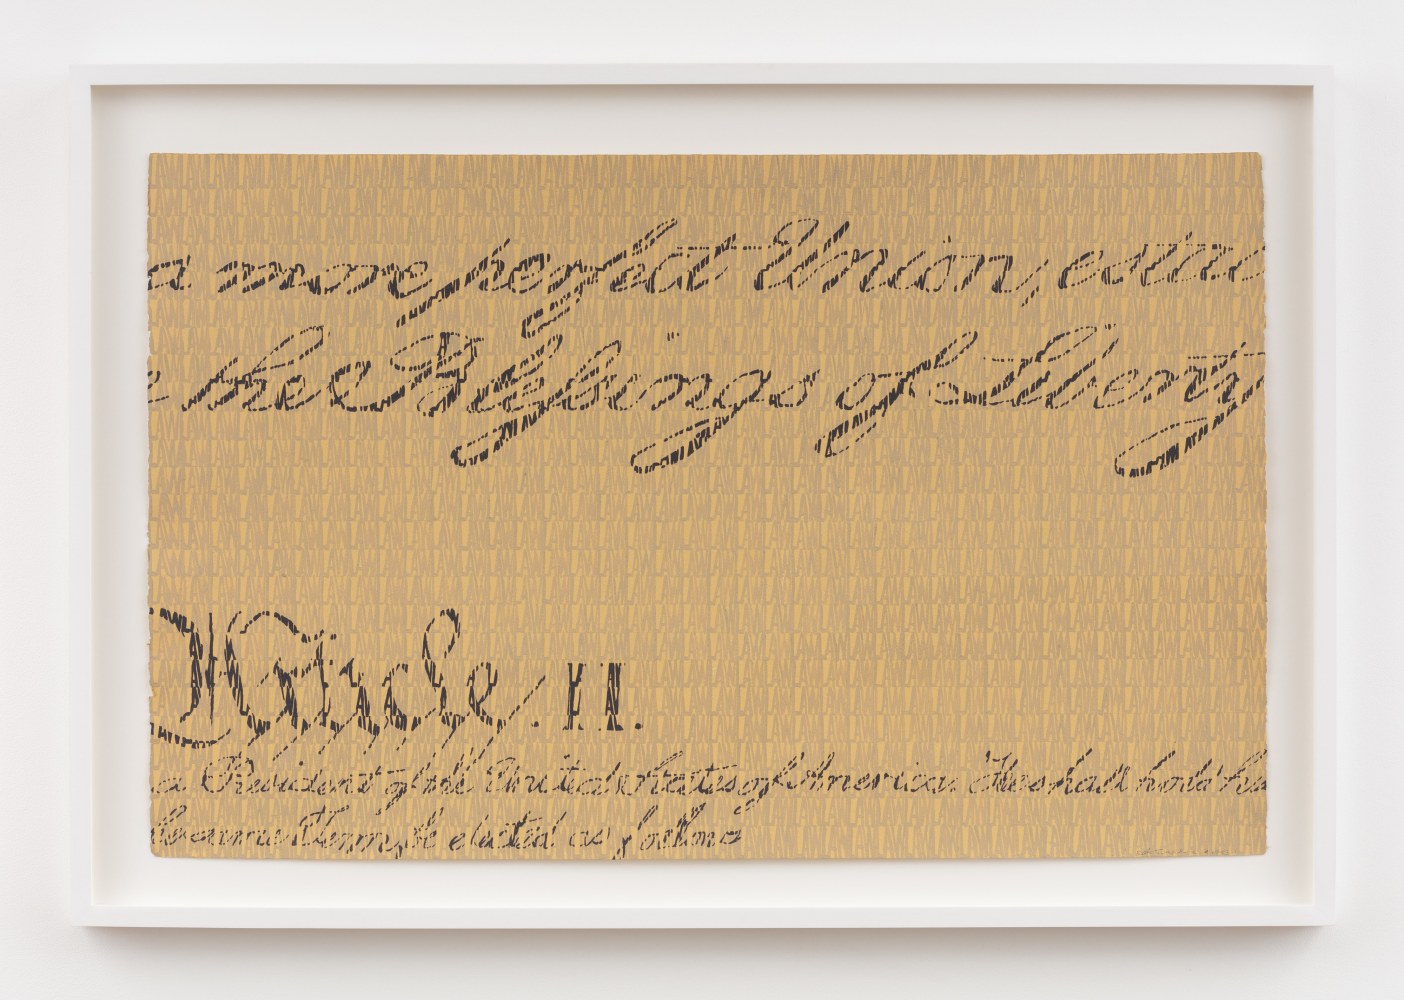 a more perfect Union, estab
e the Blessings of Liberty
Article. II.
a President of the United States of America. He shall hold his
the same Term, be elected, as follows